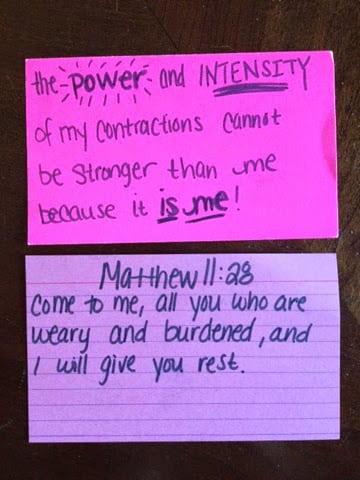 the power and INTENSITY
of my contractions cannot
be stronger than me
because it is me!
Matthew 11:28
Come to me, all you who are
weary and burdened, and
I will give you rest.